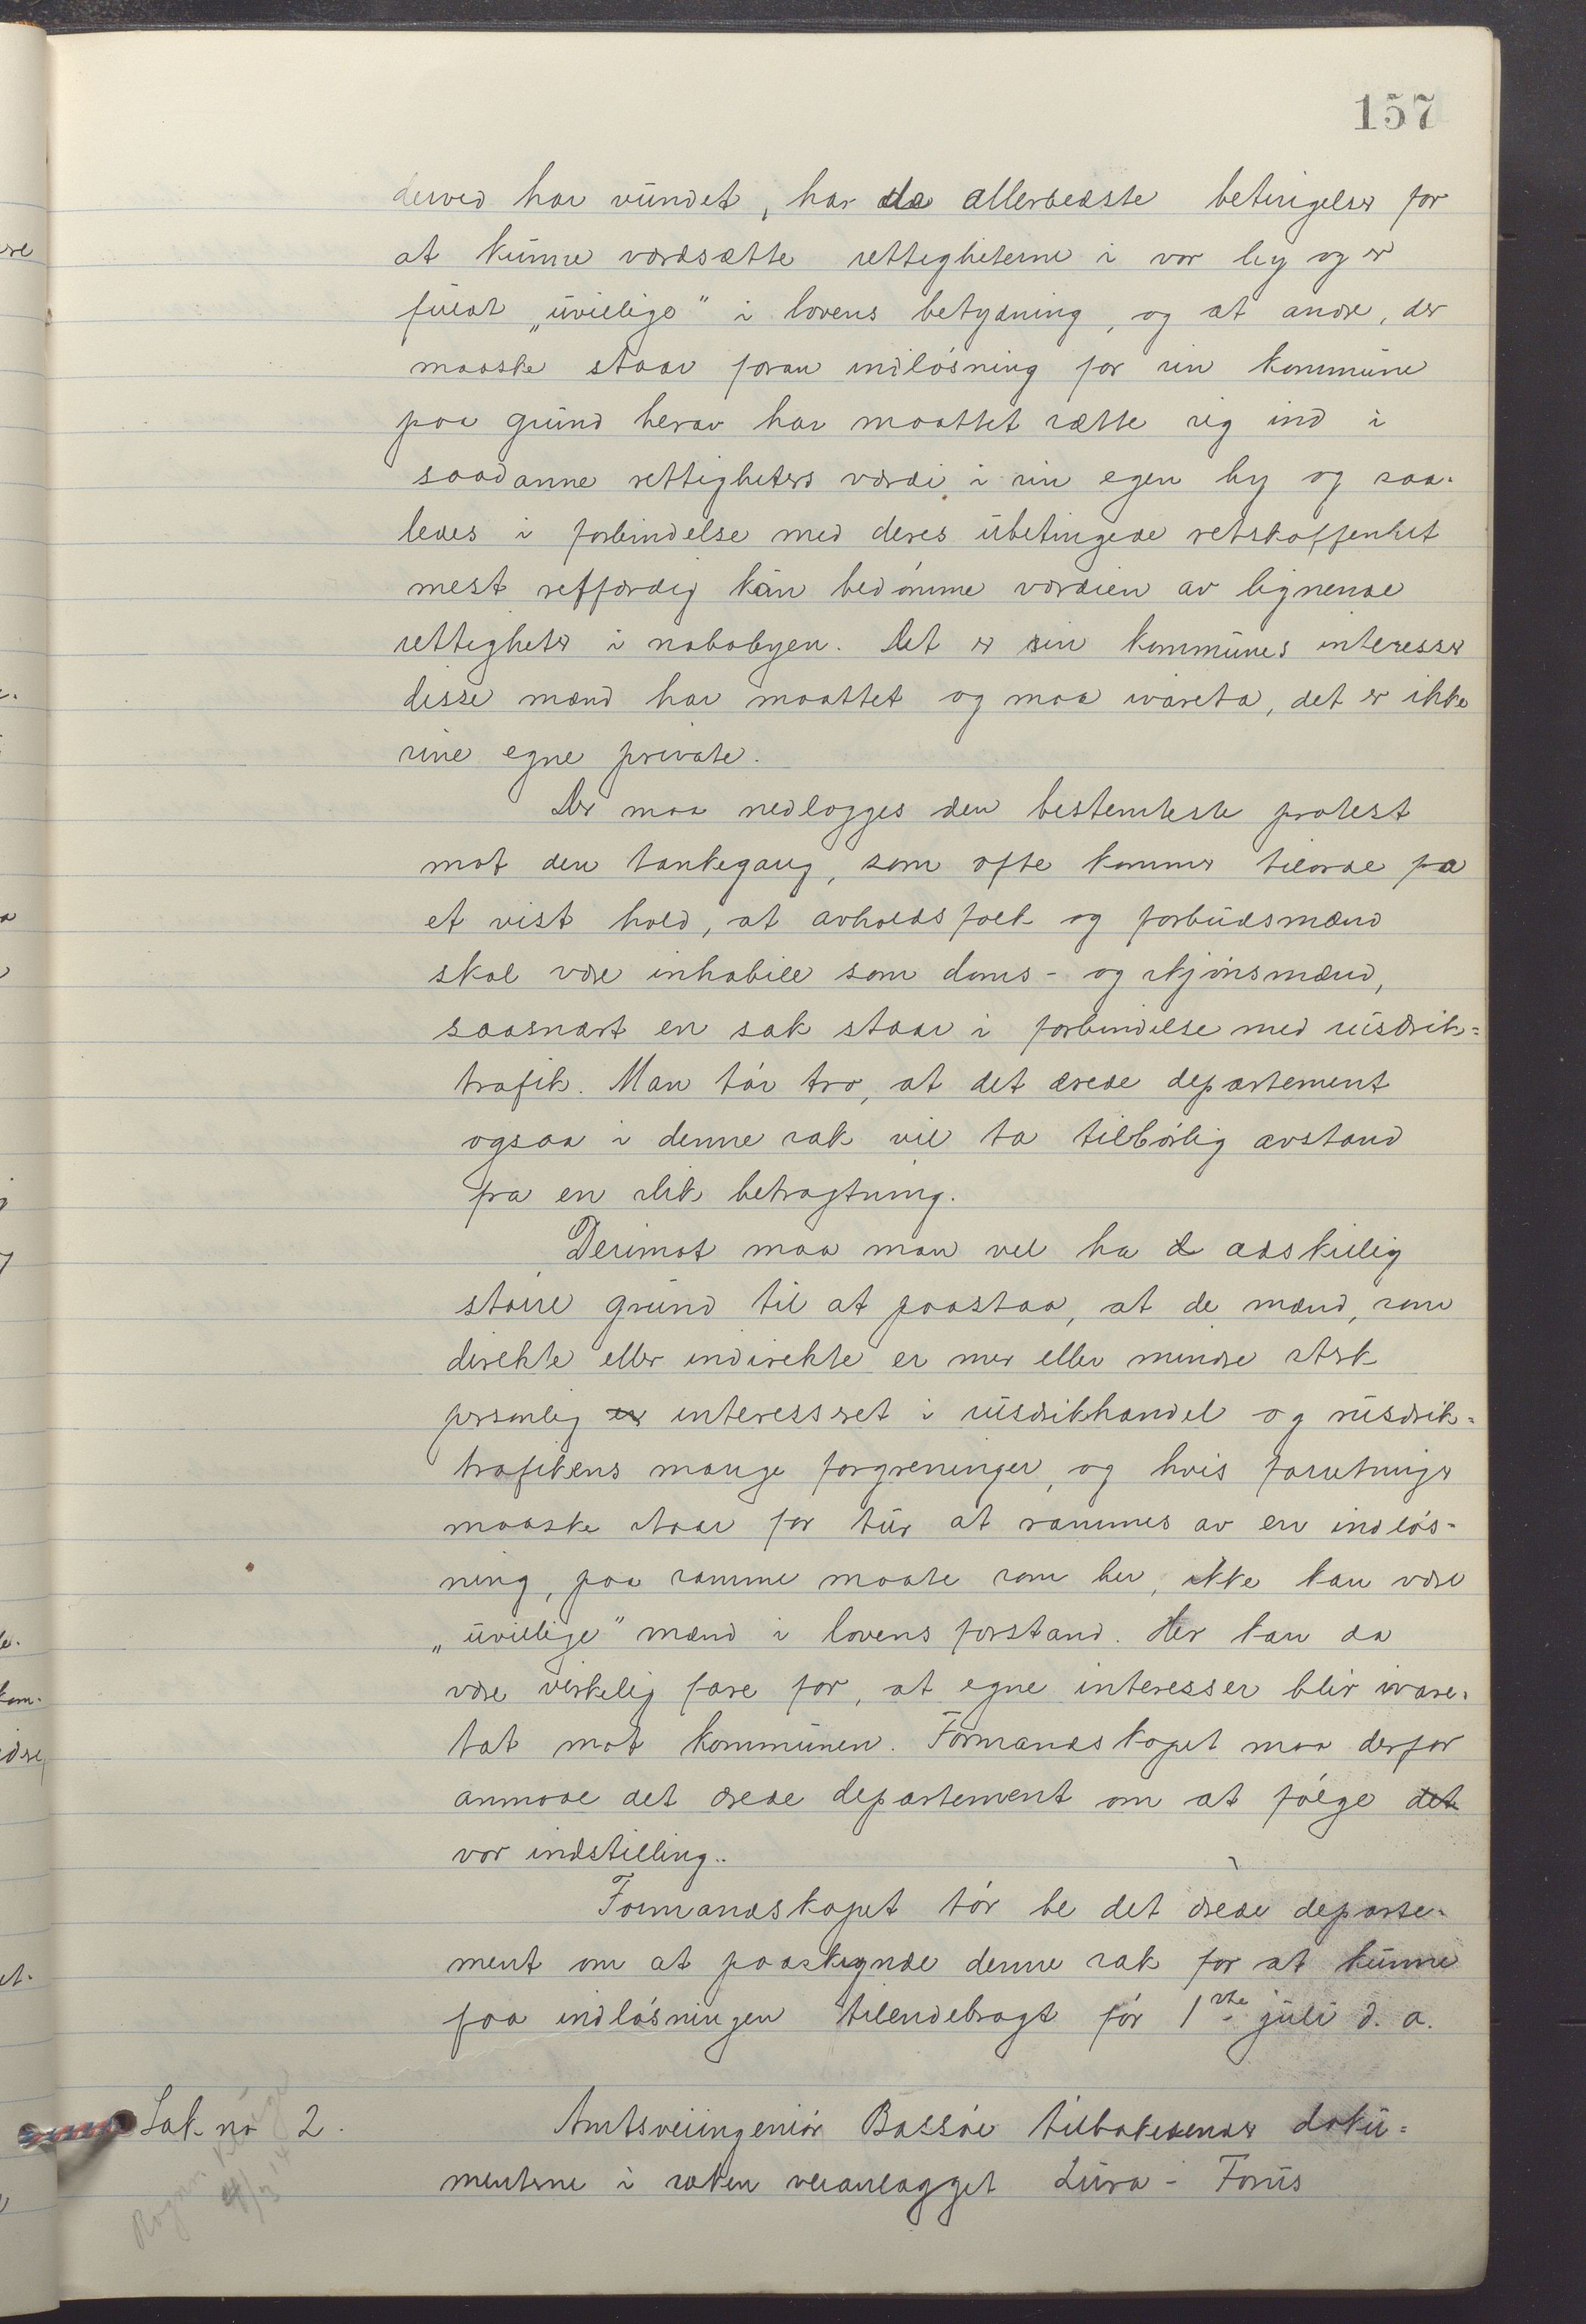 157
derved har vundet, har de allerbedste betingelser for
at kunne værdsætte rettigheterne i vor by og er
fuldt „uvillige" i lovens betydning, og at andre, der
maaske staar foran indløsning for sin kommune
paa grund herav har maattet sætte sig ind i
saadanne rettigheters værdi i sin egen by og saa-
ledes i forbindelse med deres ubetingede retskaffenhet
mest retfærdig kan bedømme værdien av lignende
rettigheter i nabobyen. Det er sin kommunes interesser
disse mænd har maattet og maa ivareta, det er ikke
sine egne private.
Der maa nedlægges den bestemteste protest
mot den tankegang, som ofte kommer tilorde pa
et vist hold, at avholdsfolk og forbudsmænd
skal være inhabile som doms- og skjønsmænd,
saasnart en sak staar i forbindelse med rusdrik-
trafik. Man tør tro, at det ærede departement
ogsaa i denne sak vil ta tilbørlig avstand
fra en slik betragtning.
Derimot maa man vel ha adskillig
større grund til at paastaa, at de mænd, som
direkte eller indirekte er mer eller mindre sterk
personlig er interesseret i rusdrikhandel og rusdrik-
trafikens mange forgreninger, og hvis forretninger
maaske staar for tur at rammes av en indløs-
ning, paa samme maate som her, ikke kan være
„uvillige" mænd i lovens forstand. Her kan da
være virkelig fare for, at egne interesser blir ivare-
tat mot kommunen. Formandskapet maa derfor
anmode det ærede departement om at følge det
vor indstilling.
Formandskapet tør be det ærede departe-
ment om at paaskynde denne sak for at kunne
faa indløsningen tilendebragt før 1ste juli d. a.
Sak no 2.
Amtsveiingeniør Bassøe tilbakesender doku-
menterne i saken veianlægget Lura - Forus